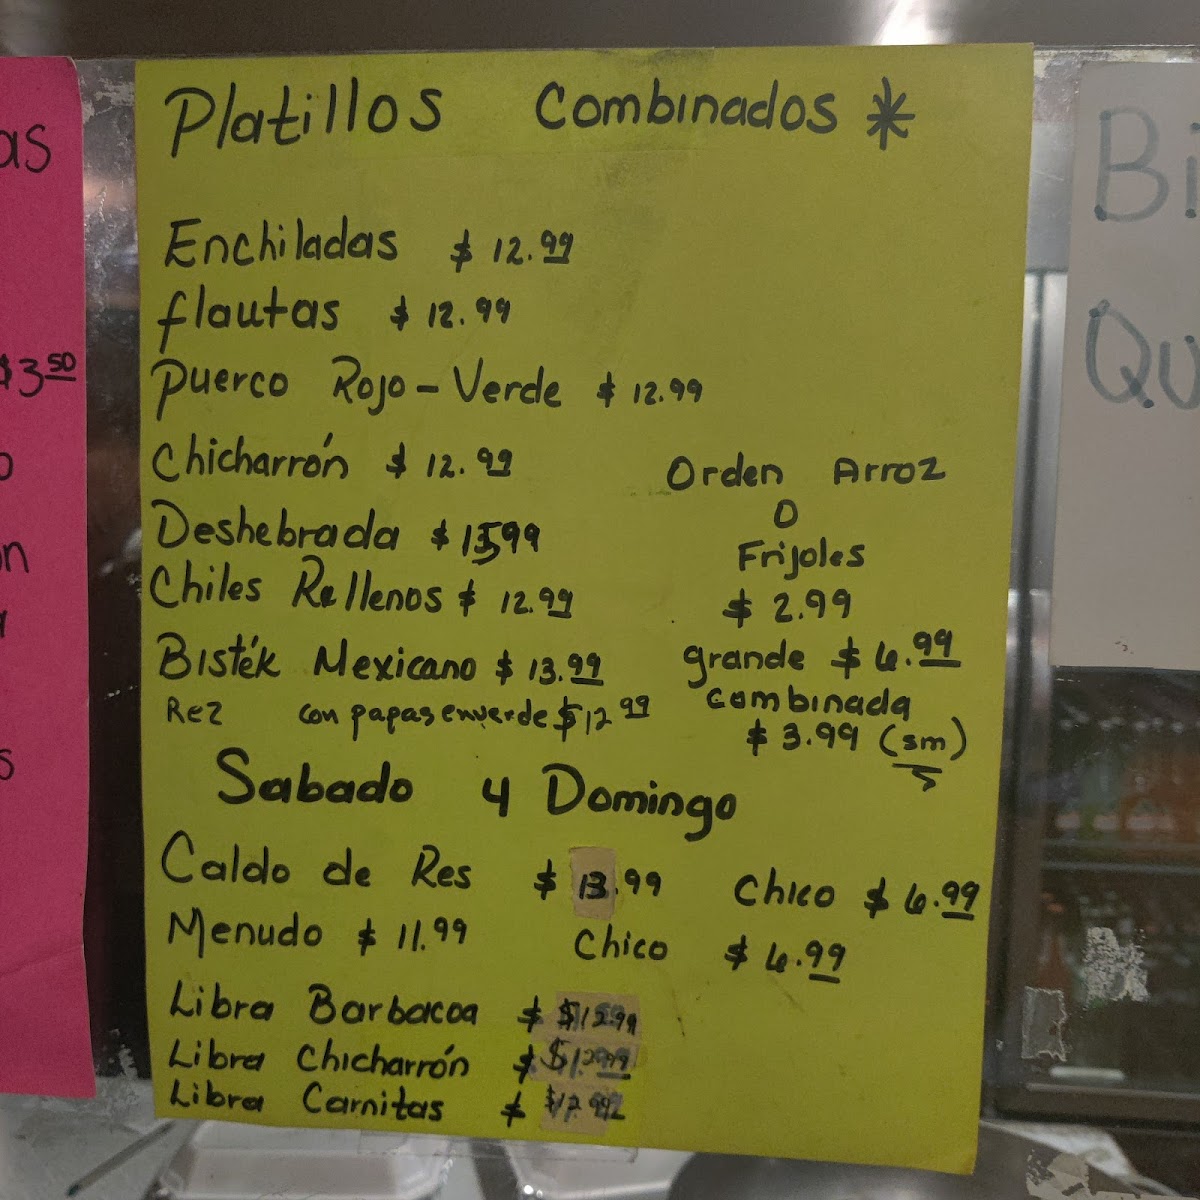 Platillos Combinados *
Enchiladas $ 12.99
flautas $ 12.99
Puerco Rojo-Verde $ 12.99
Chicharrón $ 12.99
Deshebrada $ 13.99
Chiles Rellenos $ 12.99
Bisték Mexicano $ 13.99
Rez con papas en verde $12 99
Orden Arroz
O
Frijoles
$ 2.99
grande $ 6.99
combinada
$ 3.99 (sm)
Sabado y Domingo
Caldo de Res $ 13.99 Chico $ 6.99
Menudo $ 11.99 Chico $ 6.99
Libra Barbacoa $ $12.99
Libra Chicharrón $ $12.99
Libra Carnitas $ $12.99
as
$3 50
o
on
s
Bi
Qu